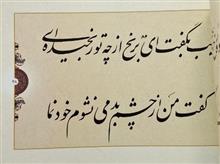 شب بگفت ای برنج از چه تو رنجیده‌ای
گفت من از چشم بد می نشوم خودنما